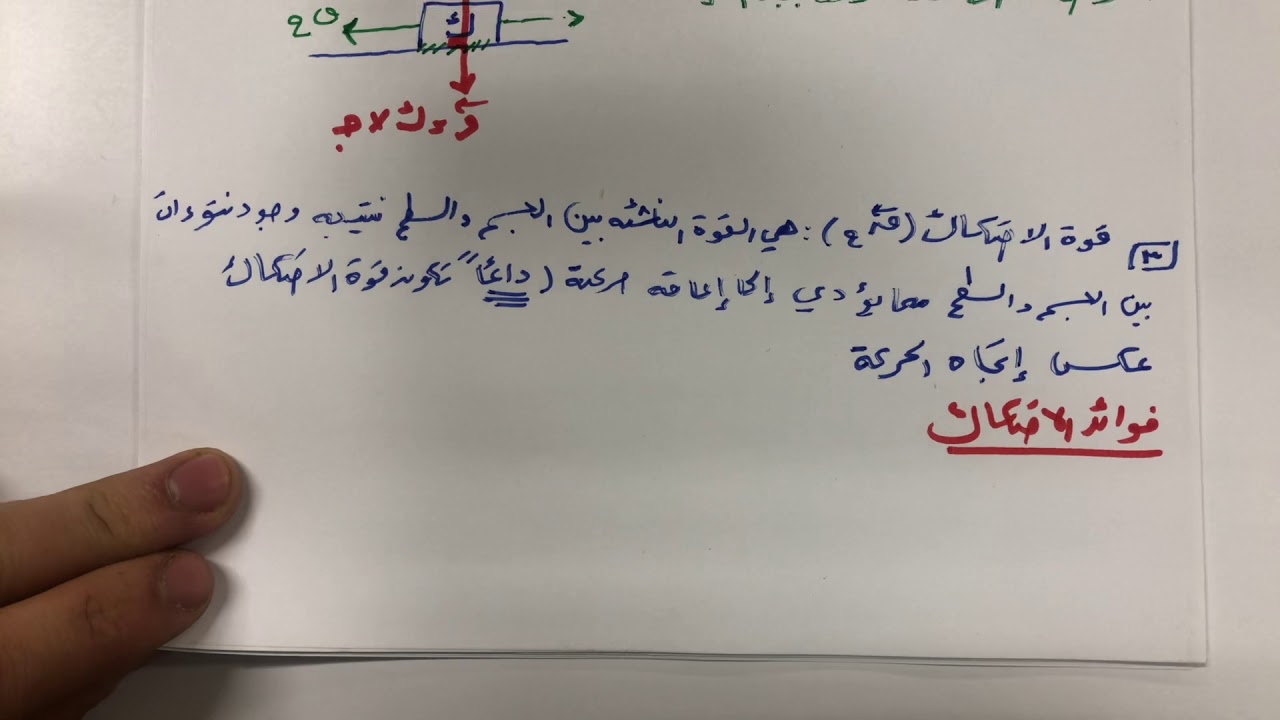 ك
و = ك × جـ
٣ قوة الاحتكاك (قح) : هي القوة الناشئه بين الجسم والسطح نتيجه وجود نتوءات
بين الجسم والسطح مما يؤدي إلى إعاقة حركة (دائماً تكون قوة الاحتكاك
عكس إتجاه الحركة
فوائد الاحتكاك